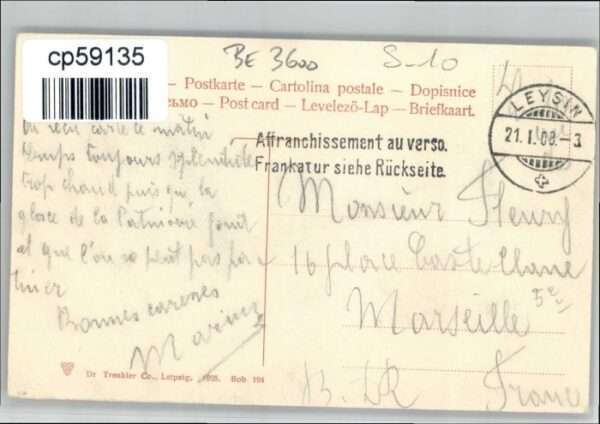 cp59135
BE 3600
S-10
— Postkarte — Cartolina postale — Dopisnice
— Post card — Levelező-Lap — Briefkaart.
LEYSIN
21.I.08.-3
Affranchissement au verso.
Frankatur siehe Rückseite.
reçu carte ce matin
temps toujours splendide
trop chaud puis que la
glace de la Patinoire fond
et que l'on ne peut pas pa-
tiner
Bonnes caresses
Marius
Monsieur Fleury
16 place Castellane
5e
Marseille
B. DR France
Dr Trenkler Co., Leipzig, 1905. Bob 104